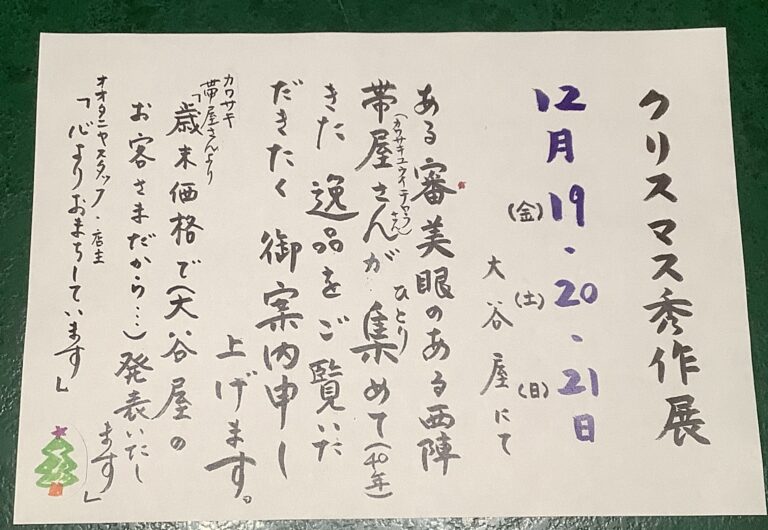 クリスマス秀作展
12月19・20・21日
(金)(土)(日)
大谷屋にて
ある審美眼のある西陣
帯屋さんが集めて(40年)
(カワサキユウイチロウさん)
ひとり
きた逸品をご覧いた
だきたく御案内申し
上げます。
カワサキ
帯屋さんより
「歳末価格で(大谷屋の
お客さまだから…)発表いたし
ます」
オオタニヤスタッフ・店主
「心よりおまちしています」